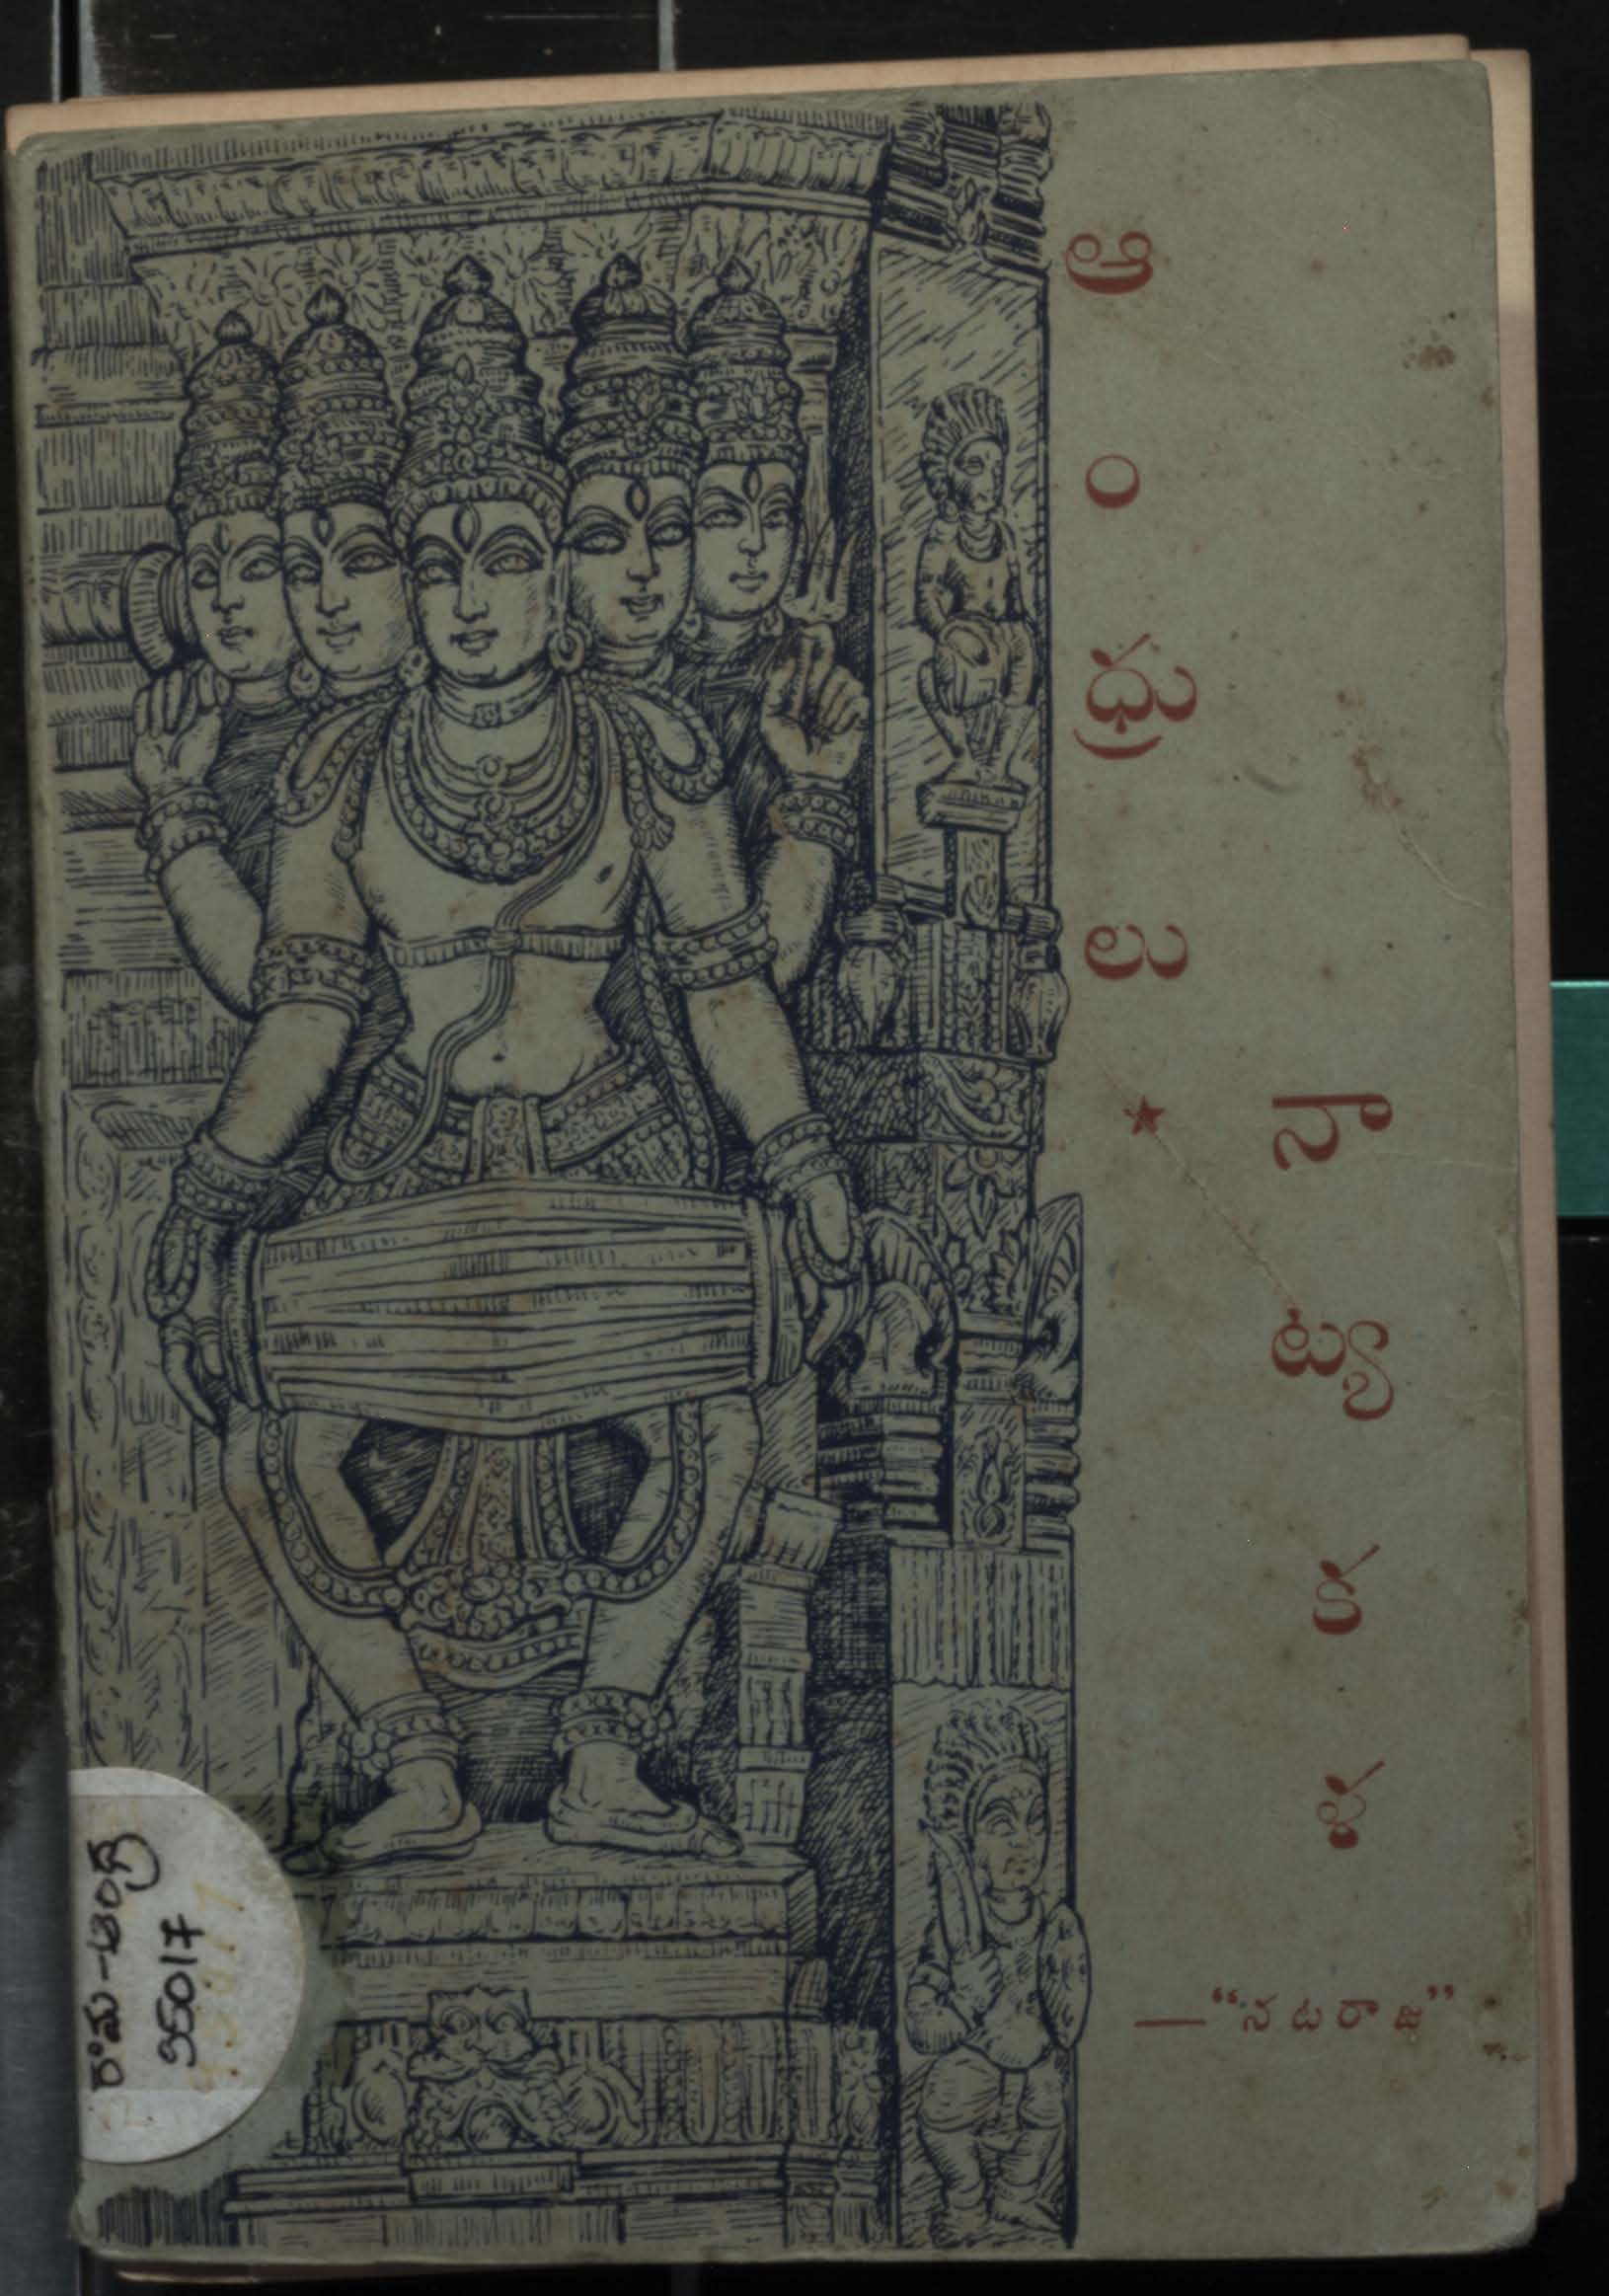 ఆంధ్రుల ★
నాట్య కళ
— "నటరాజ"
రామ-ఆంధ్ర